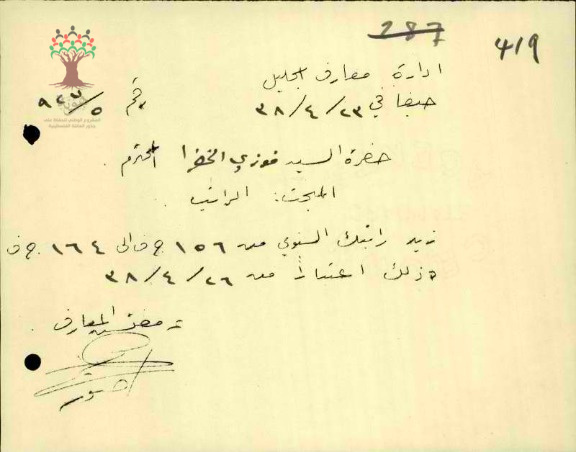 287
419
ادارة معارف الجليل
حيفا في ٢٣/٤/٣٨
رقم ٥/٩٢٧
حضرة السيد فوزي الخضرا المحترم
المبحث: الراتب
زيد راتبك السنوي من ١٥٦ ج ف الى ١٦٤ ج ف
وذلك اعتبارا من ٢٦/٤/٣٨
مفتش المعارف